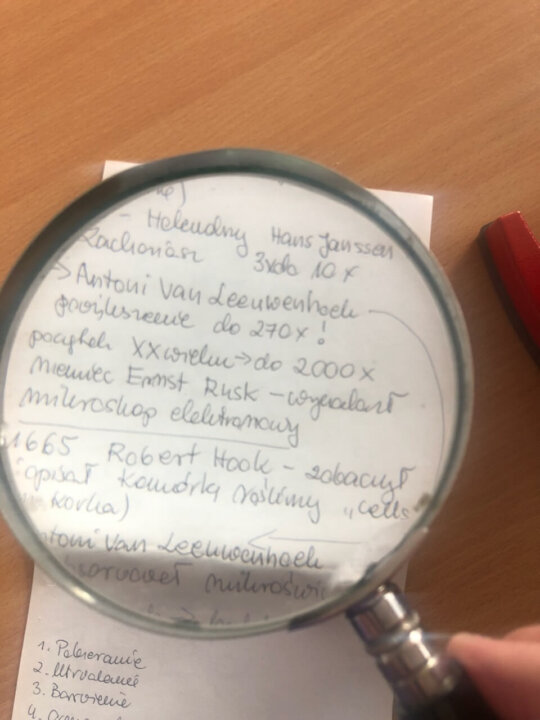 - Holendrzy Hans Janssen
Zachariasz 3x do 10x
→ Antoni Van Leeuwenhoek
powiększenie do 270x!
początek XX wieku → do 2000x
niemiec Ernst Rusk - wynalazł
mikroskop elektronowy
1665 Robert Hook - zobaczył
opisał komórkę rośliny "cells
korka)
Antoni Van Leeuwenhoek
1. Pobieranie
2. Utrwalanie
3. Barwienie
4.